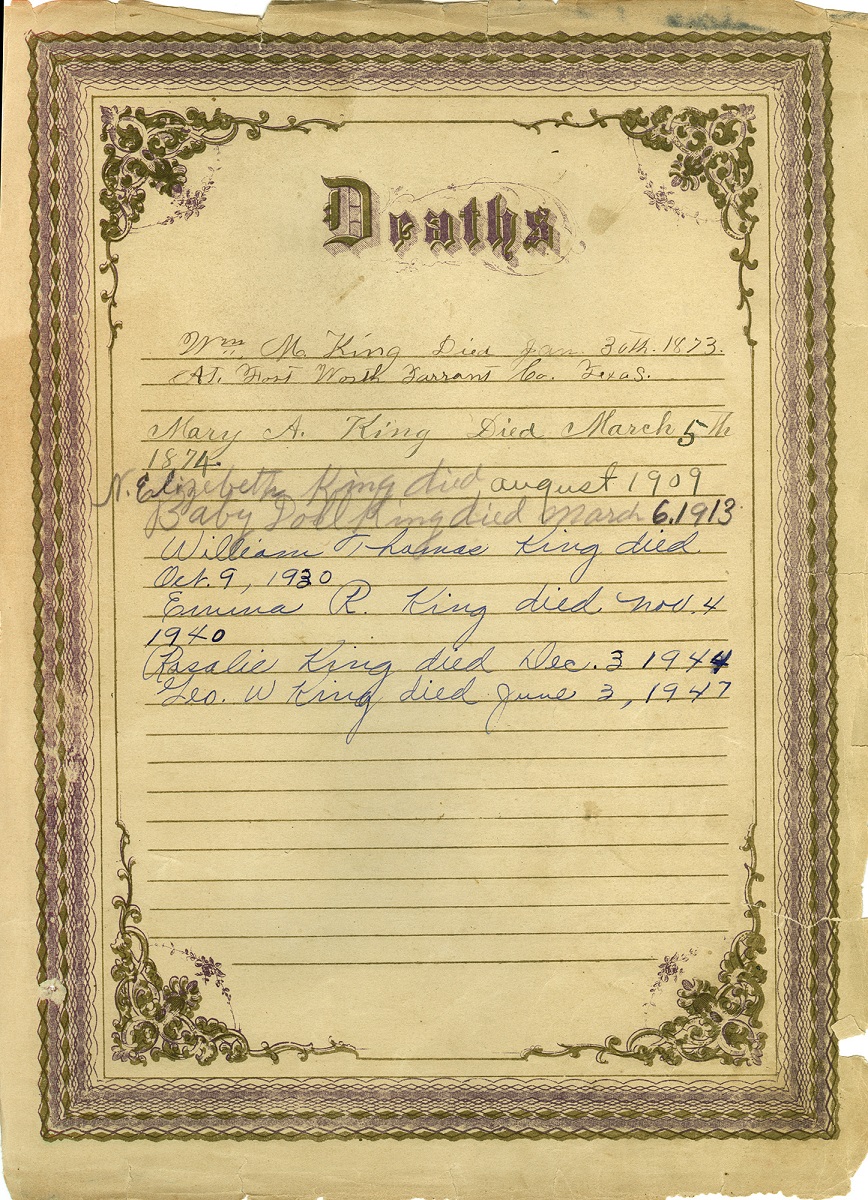 Deaths
Wm. M. King Died Jan 30th. 1873.
At. Fort Worth Tarrant Co. Texas.
Mary A. King Died March 5th
1874.
N. Elizabeth King died august 1909
Baby King died March 6, 1913
William Thomas King died
Oct. 9, 1930
Emma R. King died Nov. 4
1940
Rosalie King died Dec. 3 1944
Geo. W King died June 3, 1947